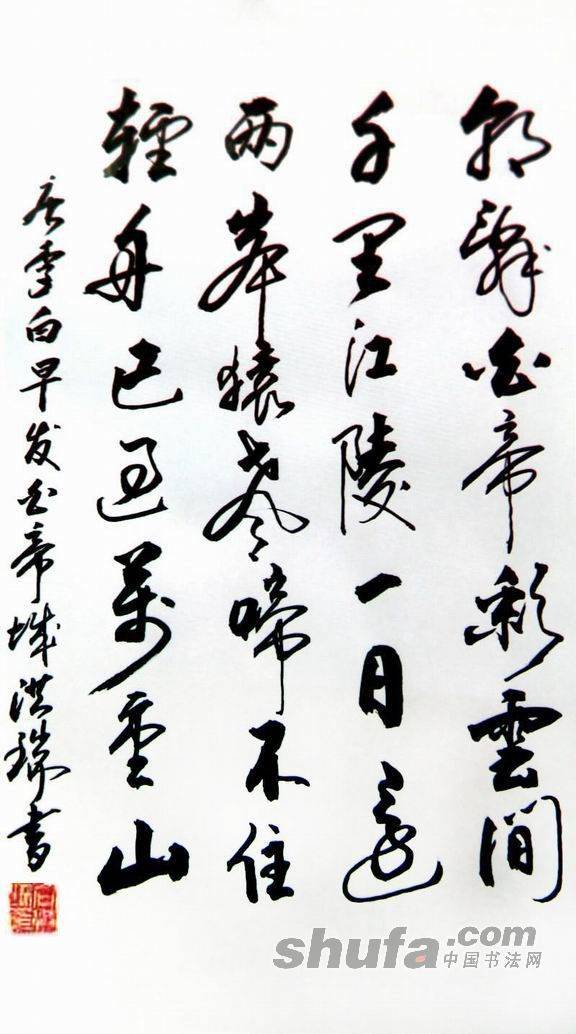 朝辭白帝彩雲間
千里江陵一日還
两岸猿聲啼不住
輕舟已過萬重山
唐李白早发白帝城洪瑞書
shufa.com
中国书法网